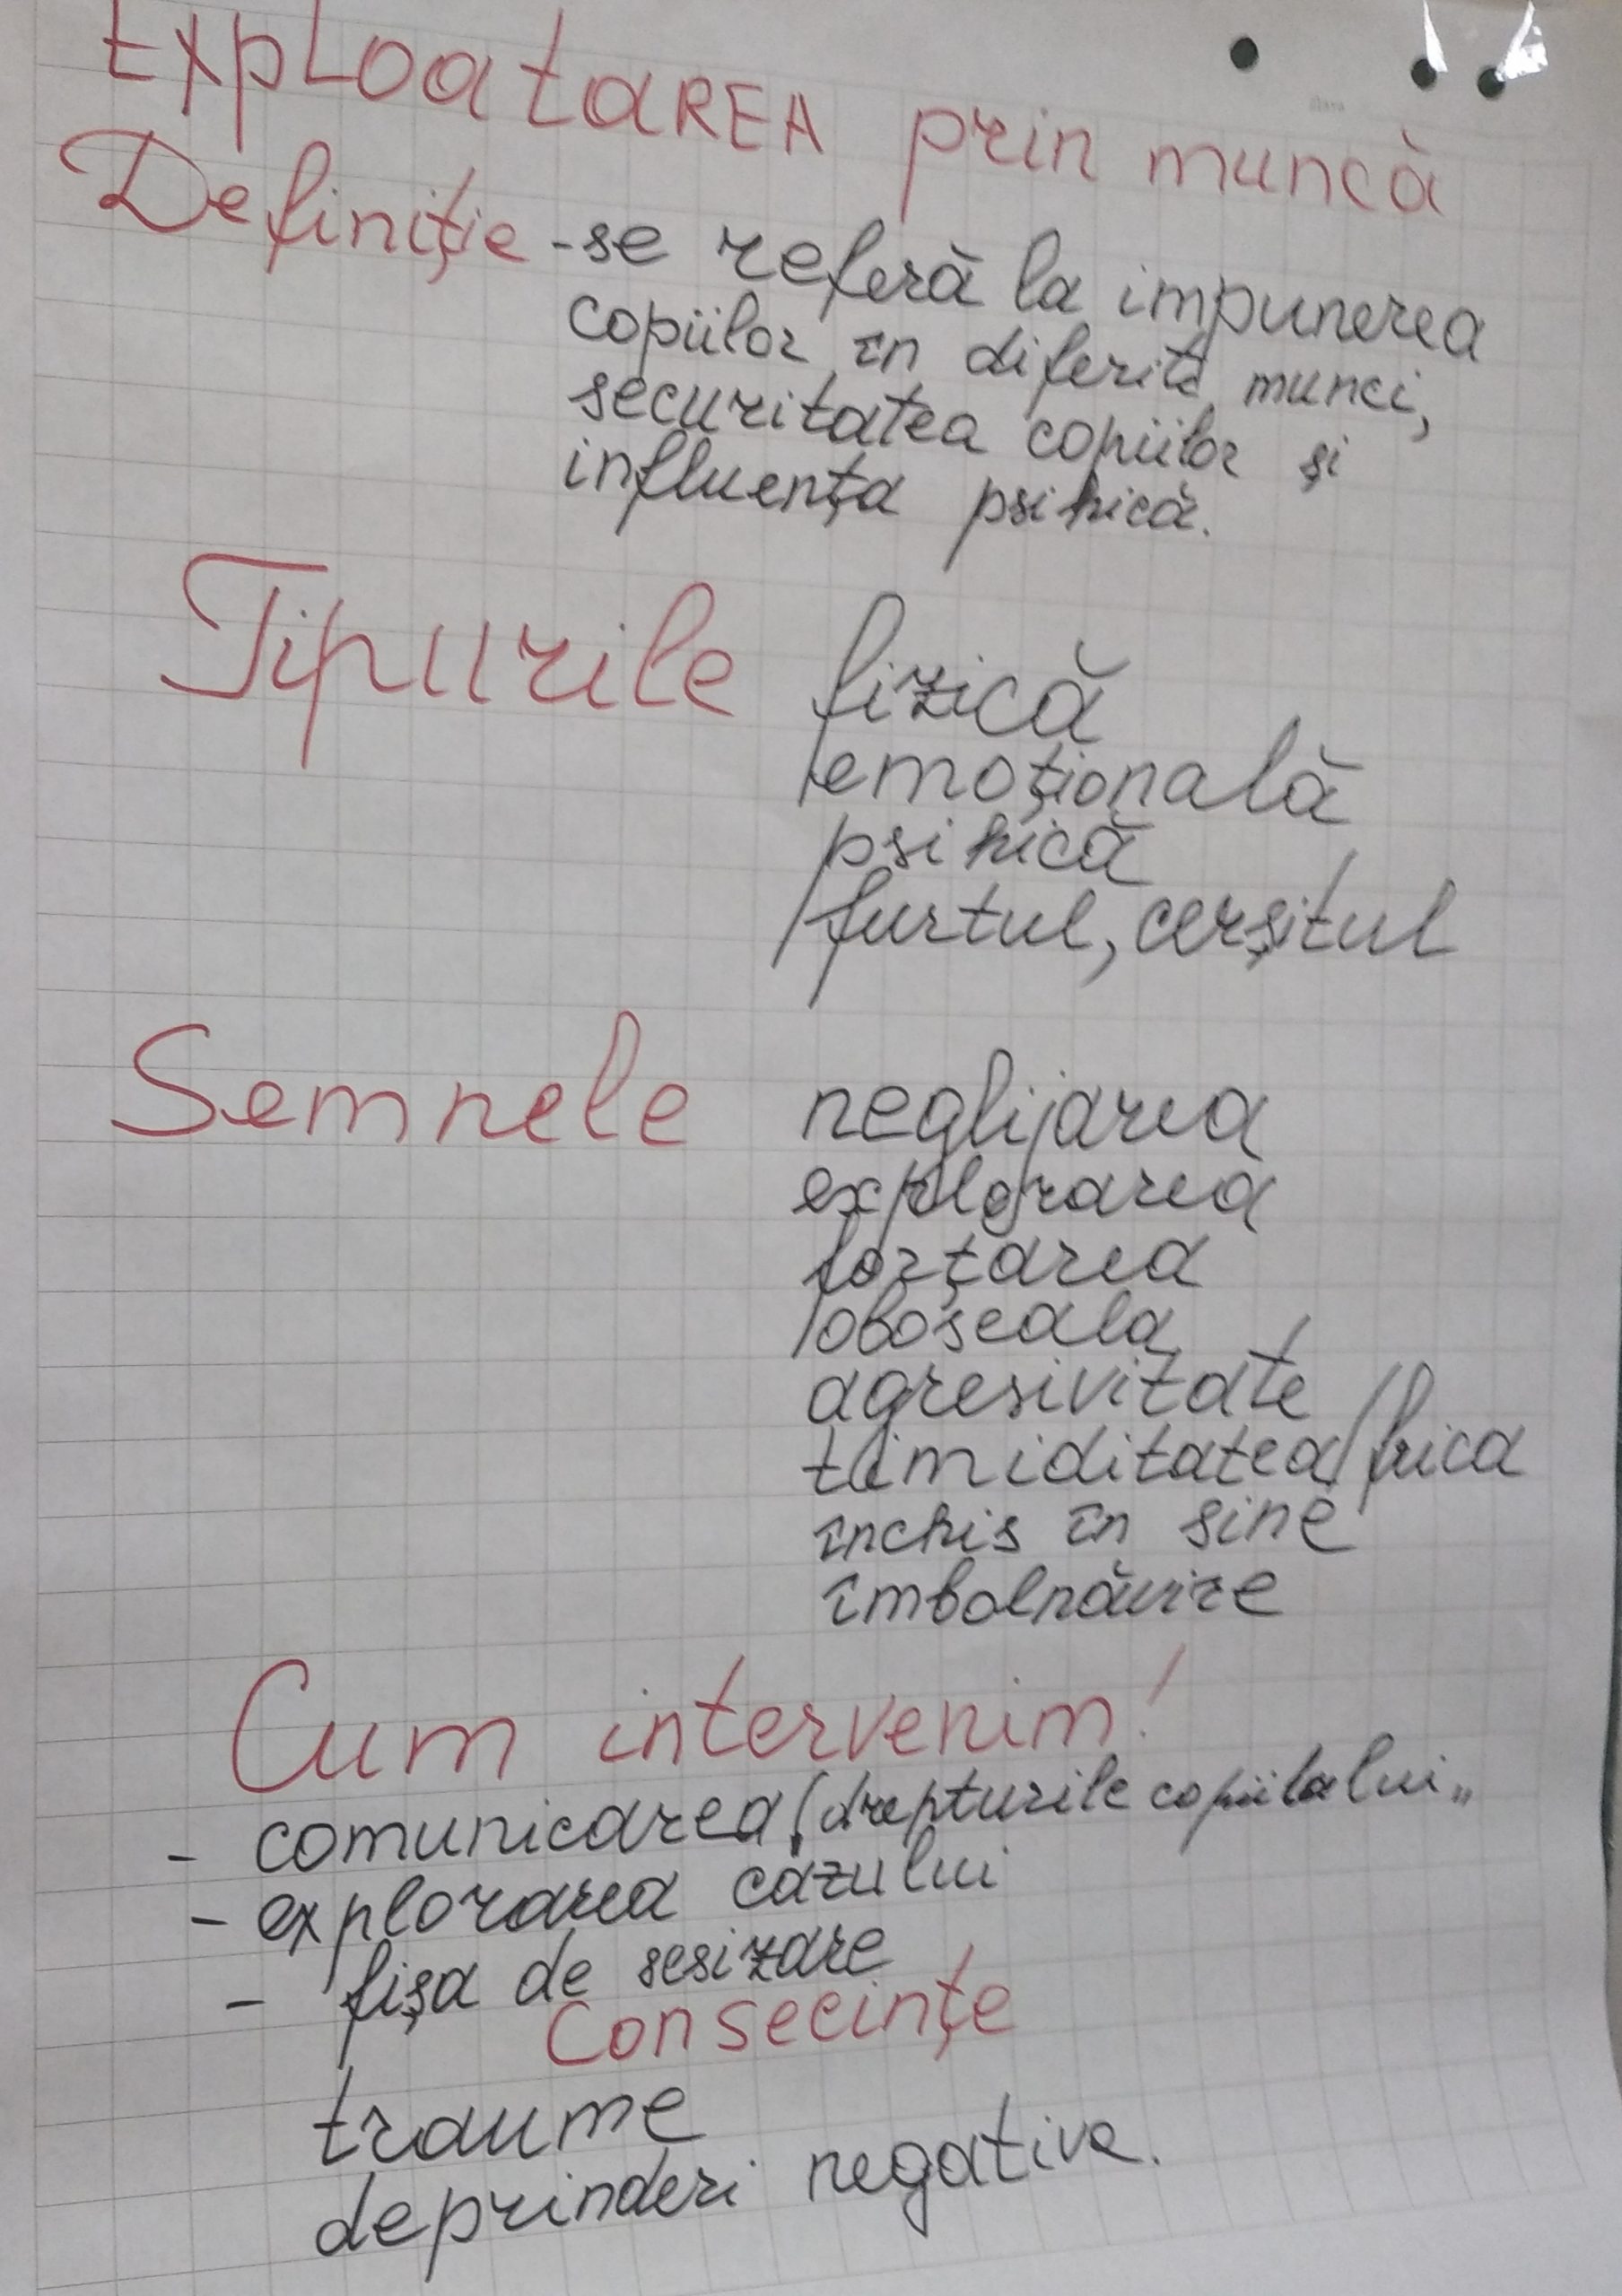 ExpLoatarEA prin muncă
Definiție - se referă la impunerea
copiilor în diferite munci,
securitatea copiilor și
influența psihică.
Tipurile fizică
emoțională
psihică
furtul, cerșitul
Semnele neglijarea
explorarea
forțarea
oboseala
agresivitate
timiditatea/frica
închis în sine
îmbolnăvire
Cum intervenim!
- comunicarea (drepturile copiilului"
- explorarea cazului
- fișa de sesizare
Consecințe
traume
deprinderi negative.